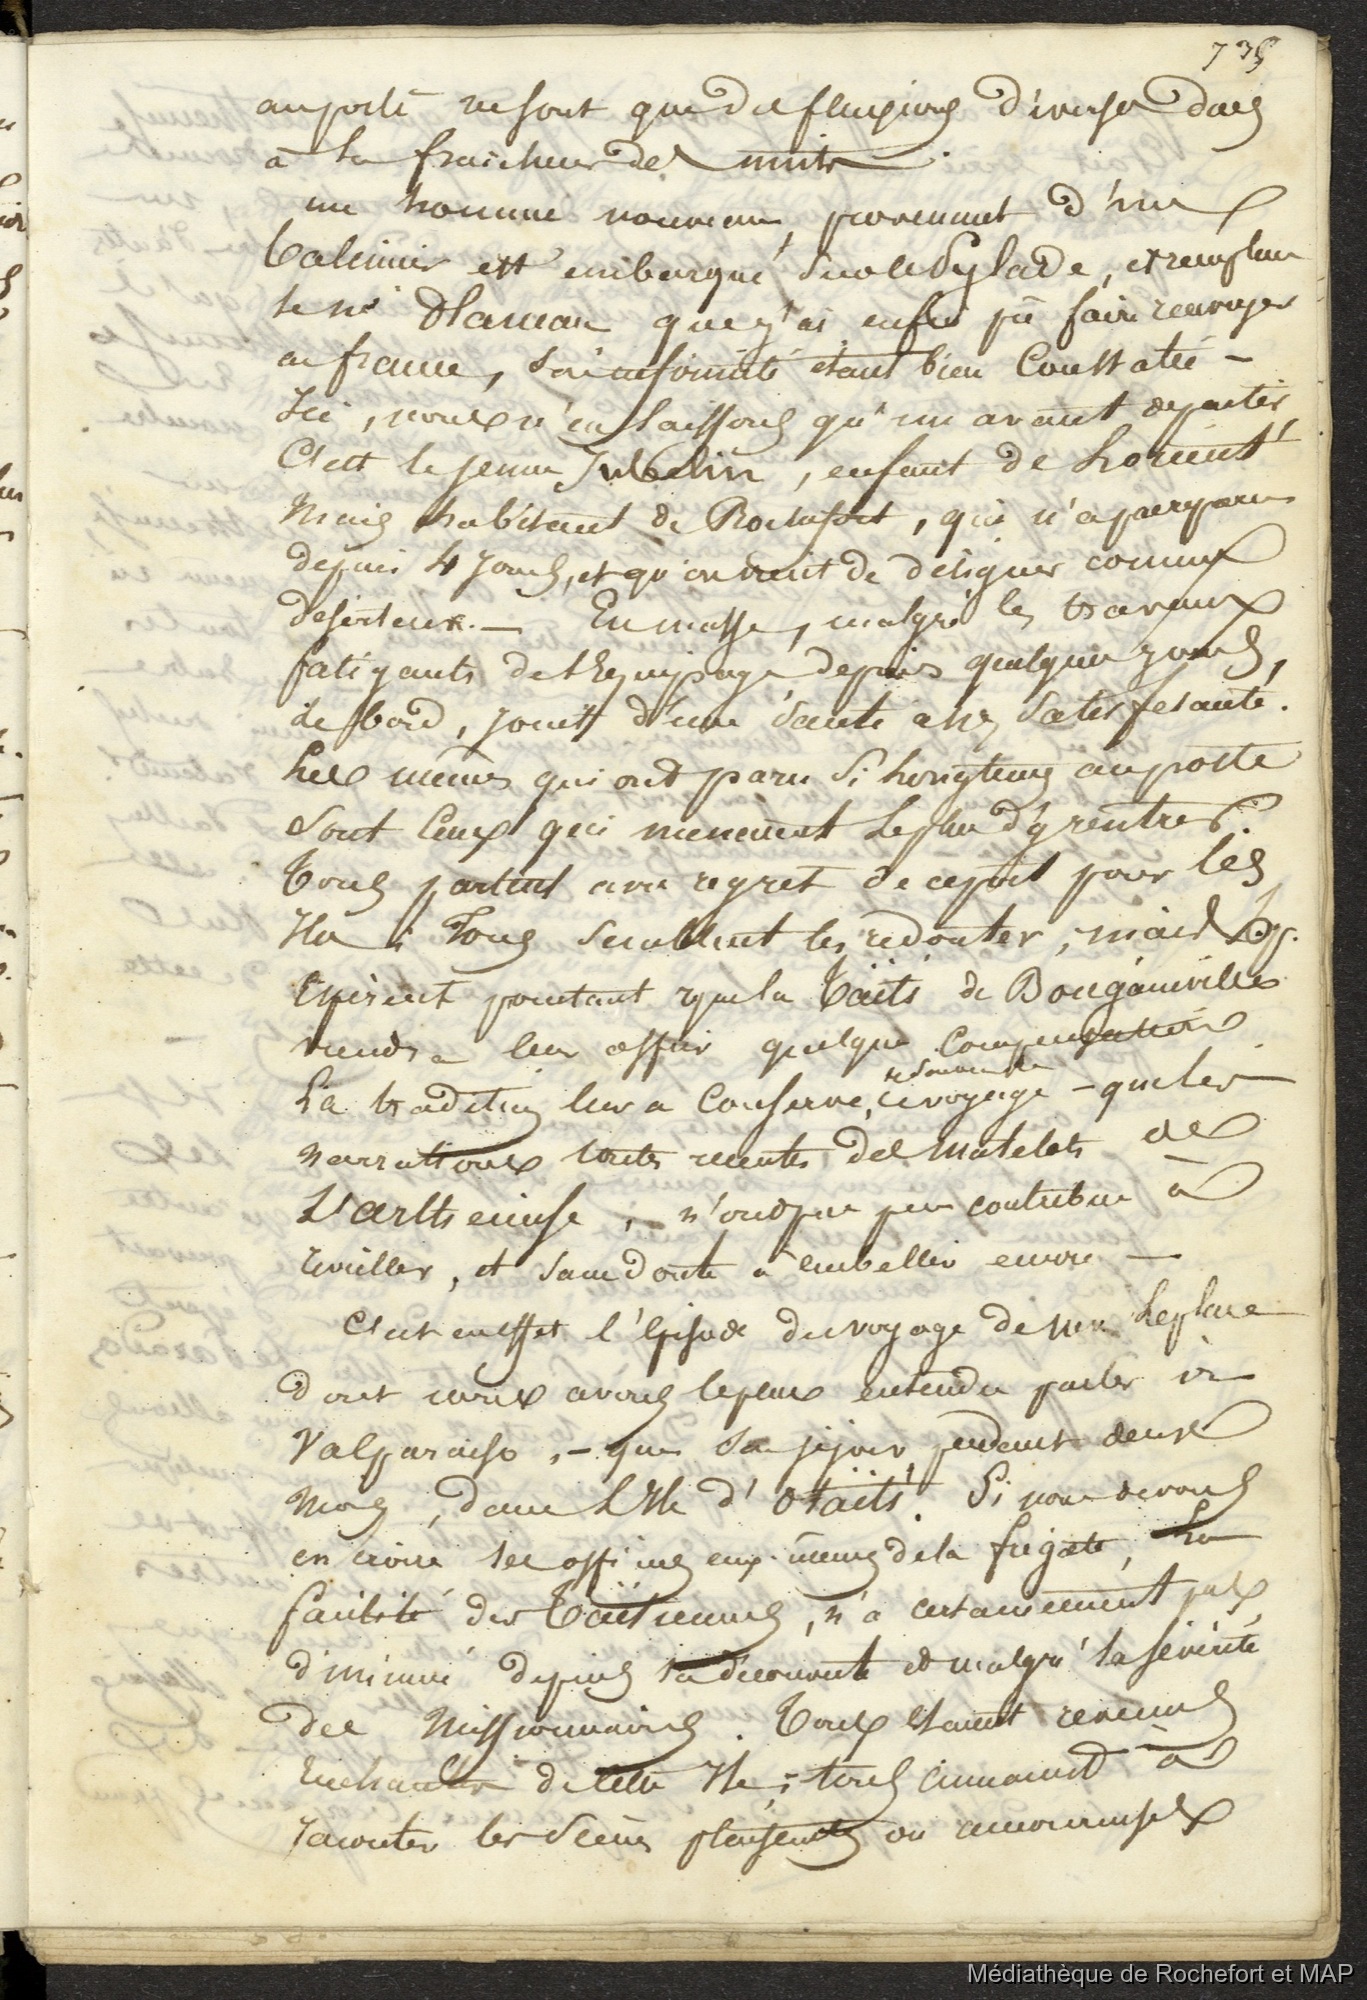 735
au poste ne sont que des fluxions diverses dues
à la fraicheur des nuits.
un homme nouveau, provenant d'un
Baleinier est embarqué sur le Pylade, et remplace
le né que j'ai enfin pû faire renvoyer
en france, son infirmité étant bien Constatée –
Ici, nous n'en laissons qu'un avant de partir,
C'est le jeune Jubelin, enfant de Lorient
Mais habitant de Rochefort, qui n'a pas paru
depuis 4 jours, et qu'on vient de désigner comme
deserteur. – En masse, malgré les travaux
fatigants de l'Equipage depuis quelques jours,
le bord, jouit d'une santé assez satisfesante.
Les mêmes qui ont paru si longtems au poste
sont ceux qui menacent le plus d'y rentrer.
Tous partent avec regret de ce port pour les
Iles ; Tous semblent les redouter, mais
Espèrent pourtant que la Taïti de Bougainville
viendra leur offrir quelque Compensation
La tradition leur a Conservé, ce voyage – que les
narrations toutes recentes des matelots de
L'arthemise, – n'ont pas peu contribué à
reveiller, et sans doute à embellir encore –
C'est en effet l'Episode du voyage de Mr Laplace
dont nous avons le plus entendu parler à
Valparaiso, – que son séjour, pendant deux
Mois, dans L'Ile d'Otaïti. Si nous devons
en croire les officiers eux-mêmes de la frégate, La
facilité des Taïtiennes, n'a certainement pas
diminué depuis sa découverte et malgré la sévérité
des Missionnaires. Tous étaient revenus
Enchantés de cette Ile ; tous aimaient à
raconter les scènes plaisantes ou amoureuses
Médiathèque de Rochefort et MAP